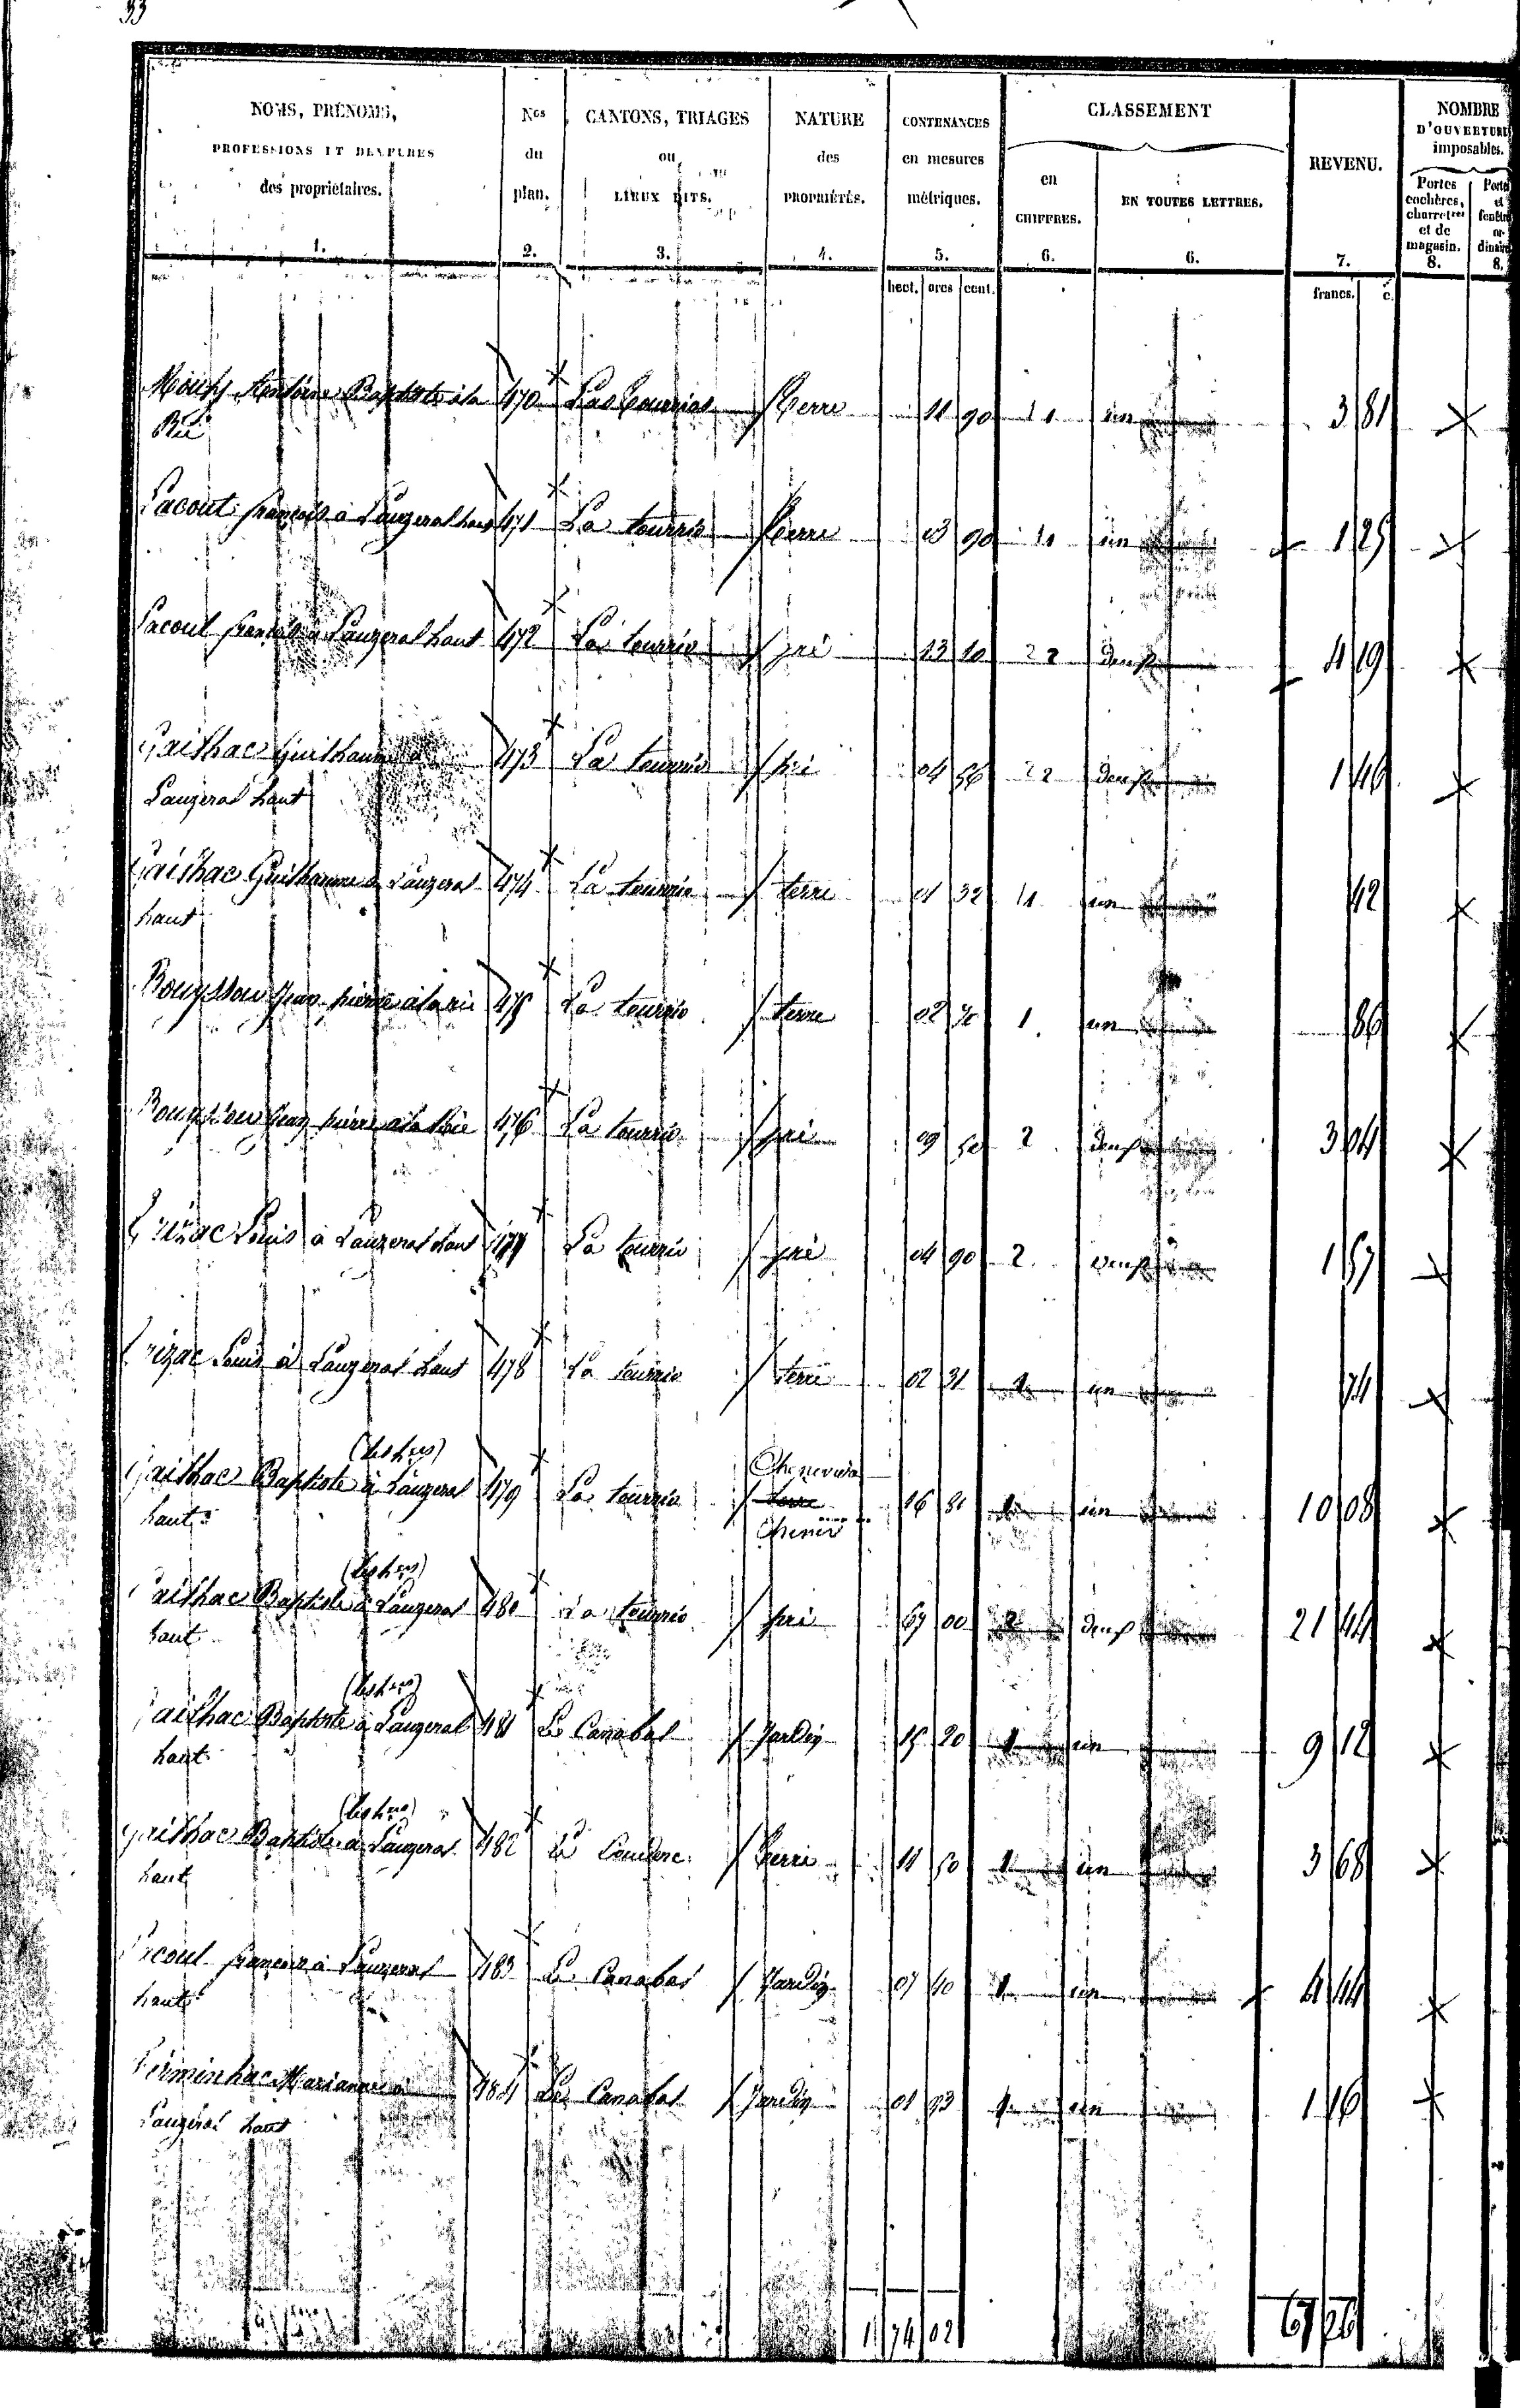 33
NOMS, PRÉNOMS,
PROFESSIONS ET DEMEURES
des propriétaires.
1.
Nos
du
plan.
2.
CANTONS, TRIAGES
ou
LIEUX DITS.
3.
NATURE
des
PROPRIÉTÉS.
4.
CONTENANCES
en mesures
métriques.
5.
CLASSEMENT
en
CHIFFRES.
6.
EN TOUTES LETTRES.
6.
REVENU.
7.
NOMBRE
D'OUVERTURE
imposables.
Portes
cochères,
charretres
et de
magasin.
8.
Portes
et
fenêtr
or-
dinaire
8.
hect. ares cent. francs. c.
Antoine Baptiste à la 470 Terre 11 90 1 un 3 81
Lacout françois à Lauzeral haut 471 La tourrio Terre 03 90 1 un 1 25
Lacout françois à Lauzeral haut 472 La tourrio pré 13 10 2 deux 4 19
Gailhac Guilhaume à 473 La tourrio pré 04 56 2 deux 1 46
Lauzeral haut
Gailhac Guilhaume à Lauzeral 474 La tourrio terre 01 32 1 un 42
haut
Bouyssou Jean pierre à la rie 475 La tourrio terre 02 70 1 un 86
Bouyssou Jean pierre à la Rie 476 La tourrio pré 09 50 2 deux 3 04
Louis à Lauzeral haut 477 La tourrio pré 04 90 2 deux 1 57
Louis à Lauzeral haut 478 La tourrio terre 02 31 1 un 74
(les hers)
Gailhac Baptiste à Lauzeral 479 La tourrio terre 16 81 1 un 10 08
haut
(les hers)
Gailhac Baptiste à Lauzeral 480 La tourrio pré 67 00 2 deux 21 44
haut
(les hers)
Gailhac Baptiste à Lauzeral 481 Le Canabal Jardin 15 20 1 un 9 12
haut
(les hers)
Gailhac Baptiste à Lauzeral 482 Le Couderc Terre 11 50 1 un 3 68
haut
Lacout françois à Lauzeral 483 Le Canabal Jardin 07 40 1 un 4 44
haut
Firminhac Marianne à 484 Le Canabal Jardin 01 93 1 un 1 16
Lauzéral haut
1 74 02 67 26